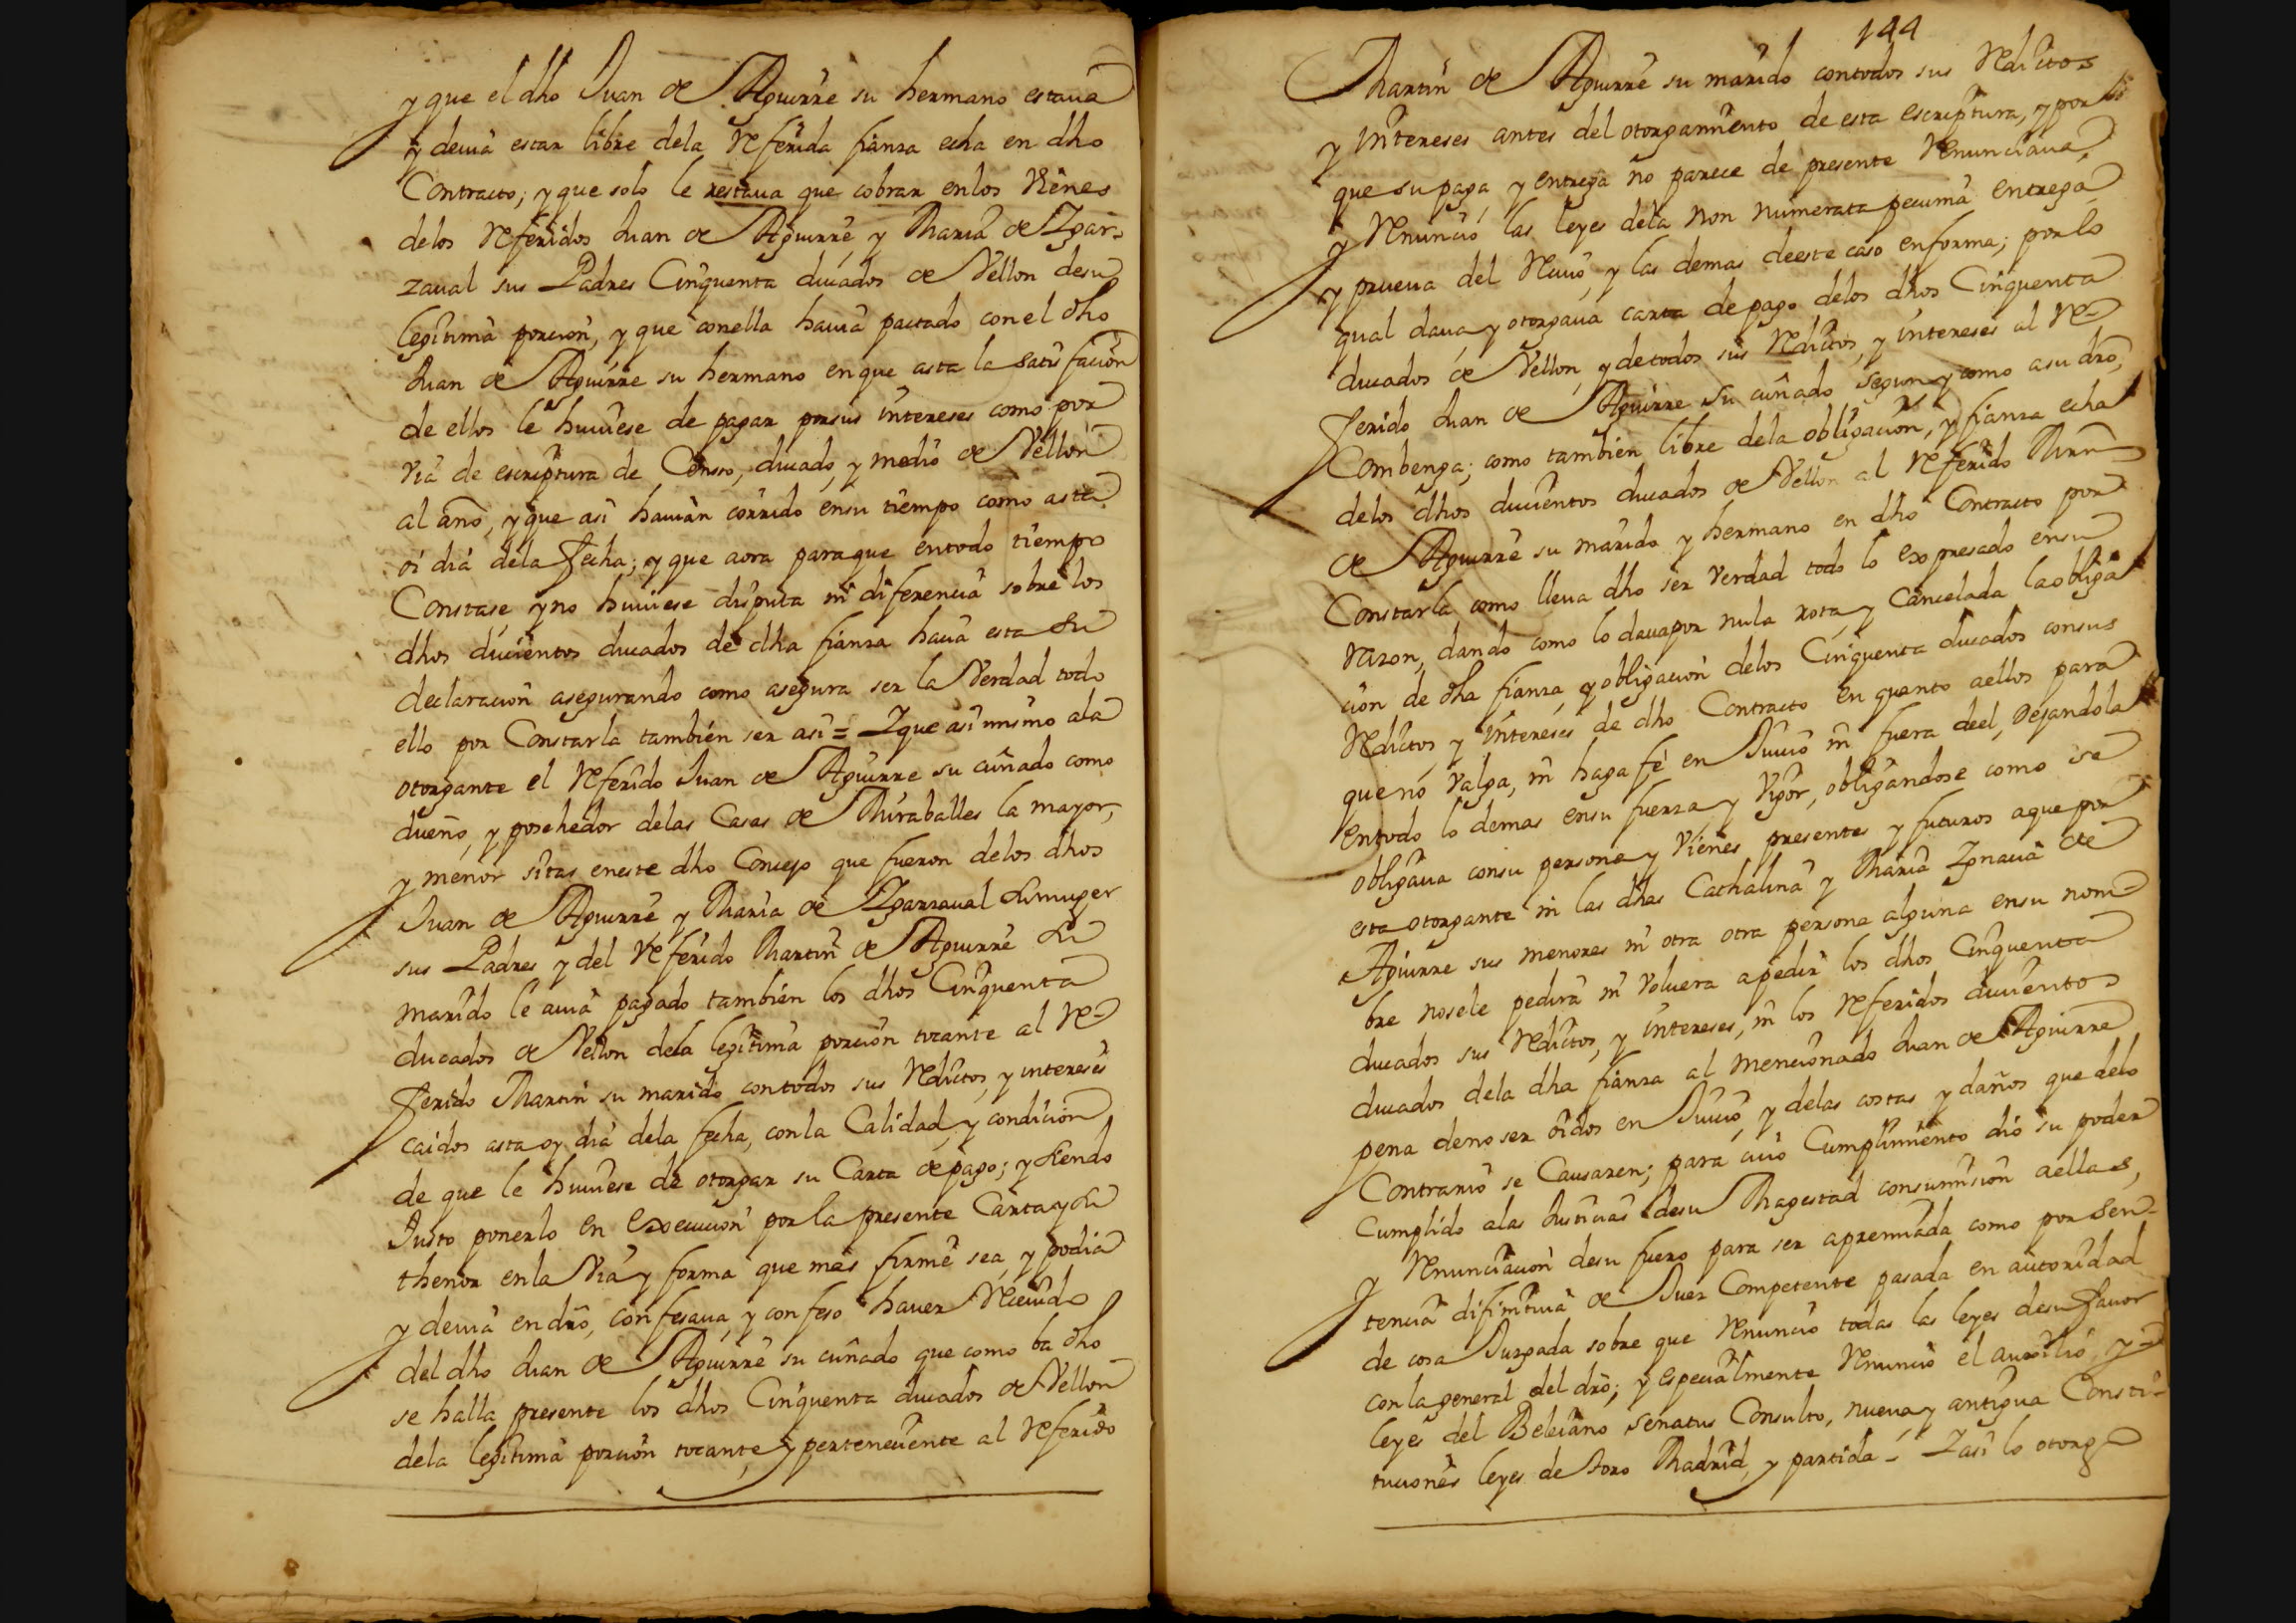 y que el dho Juan de Aguirre su hermano estaua
y deuia estar libre dela Referida fianza echa en dho
Contracto; y que solo le restaua que cobrar enlos Vienes
delos Referidos Juan de Aguirre y Maria de Ygar-
zaual sus Padres Cinquenta ducados de Vellon desu
legitima porcion, y que conella hauia pactado con el dho
Juan de Aguirre su hermano enque asta la satisfacion
de ellos le huuiese de pagar porsus intereses como por
via de escriptura de Censo, ducado, y medio de Vellon
al año, y que asi hauian corrido ensu tiempo como asta
oi dia dela fecha; y que aora paraque entodo tiempo
Constase, y no huuiese disputa ni diferencia sobre los
dhos ducientos ducados de dha fianza hacia esta su
declaracion asegurando como asegura ser la Verdad todo
ello por Constarla también ser asi = Y que asi mismo ala
otorgante el Referido Juan de Aguirre su cuñado como
dueño, y posehedor delas Casas de Miraballes la mayor,
y menor sitas eneste dho Concejo que fueron delos dhos
Juan de Aguirre y Maria de Ygarzaual su muger
sus Padres y del Referido Martin de Aguirre su
marido le auia pagado tambien los dhos Cinquenta
ducados de Vellon dela legitima porcion tocante al Re-
ferido Martin su marido contodos sus Reditos, y intereses
caidos asta oy dia dela fecha, conla Calidad, y condicion
de que le huuiese de otorgar su Carta de pago; y siendo
Justo ponerlo en Execucion por la presente Carta y su
thenor enla Via y forma que mas firme sea, y podia
y deuia en dro, confesaua, y confeso hauer Reciuido
del dho Juan de Aguirre su cuñado que como ba dho
se halla presente los dhos Cinquenta ducados de Vellon
dela legitima porcion tocante, y perteneciente al Referido
144
Martin de Aguirre su marido contodos sus Reditos
y intereses antes del otorgamiento de esta escriptura, y por
que su paga, y entrega no parece de presente Renunciaua,
y Renuncio las leyes dela non numerata pecunia entrega
y prueua del Reciuo, y las demas deeste caso enforma; por lo
qual daua, y otorgaua carta de pago delos dhos Cinquenta
ducados de Vellon, y de todos sus Reditos, y intereses al Re-
ferido Juan de Aguirre su cuñado segun y como asu dro,
Combenga; como tambien libre dela obligacion, y fianza echa
delos dhos ducientos ducados de Vellon al Referido Mrn
de Aguirre su marido y hermano en dho Contracto por
Constarla como lleua dho ser Verdad todo lo expresado ensu
Razon, dando como lo daua por nula rota, y Cancelada la obliga
cion de dha fianza, y obligacion delos Cinquenta ducados consus
Reditos, y intereses de dho Contracto en quanto aellos para
que no Valga, ni haga fe en Juicio ni fuera deel, dejandola
entodo lo demas ensu fuerza y Vigor, obligandose como se
obligaua consu persona y Vienes presentes y futuros aque por
esta otorgante ni las dhas Cathalina y Maria Ygnacia de
Aguirre sus menores ni otra otra persona alguna ensu nom-
bre nosele pedira ni Voluera apedir los dhos Cinquenta
ducados sus Reditos, y intereses, ni los Referidos ducientos
ducados dela dha fianza al mencionado Juan de Aguirre
pena deno ser oidos en Juicio, y delas costas y daños que delo
Contrario se Causaren; para cuio Cumplimiento dio su poder
Cumplido alas Justicias desu Magestad consumision aellas,
y Renunciacion desu fuero para ser apremiada como por sen-
tencia difinitiua de Juez Competente pasada en autoridad
de cosa Juzgada sobre que Renuncio todas las leyes desu fauor
con la general del dro; y especialmente Renuncio el auxilio, y
leyes del Beleiano senatus Consulto, nueua, y antigua Consti-
tuciones leyes de toro Madrid, y partida - Y asi lo otorgo